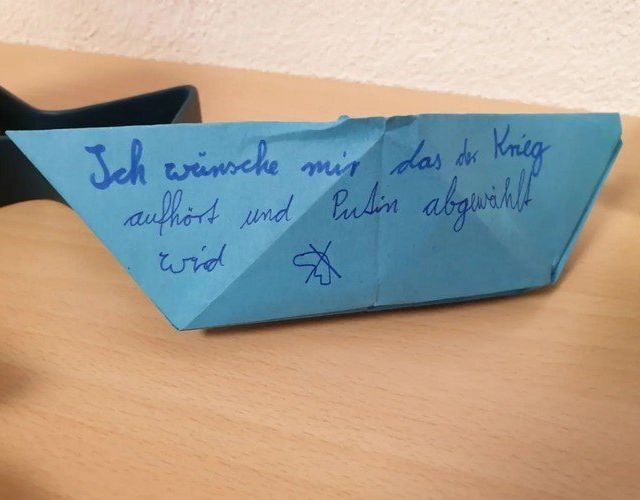 Ich wünsche mir das der Krieg
aufhört und Putin abgewählt
wird